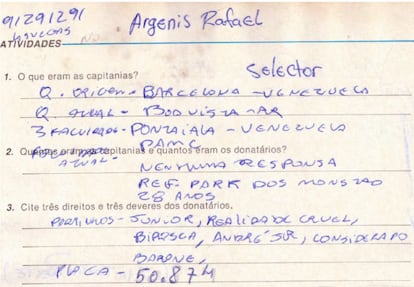 91291291 Argenis Rafael
ATIVIDADES
1. O que eram as capitanias? Selector
Q. ORIGEM - BARCELONA - VENEZUELA
Q. ATUAL - BOA VISTA -
3 - VENEZUELA
PAMC
2. capitanias e quantos eram os donatários?
ATUAL - NENHUMA RESPONSA
REF. PARK DOS MONSTRO
28 ANOS
3. Cite três direitos e três deveres dos donatários.
PADRINHOS - JUNIOR, REALIDADE CRUEL,
BIROSCA, ANDRÉ SUR, CONSIDERADO
BARONE,
PLACA - 50.874